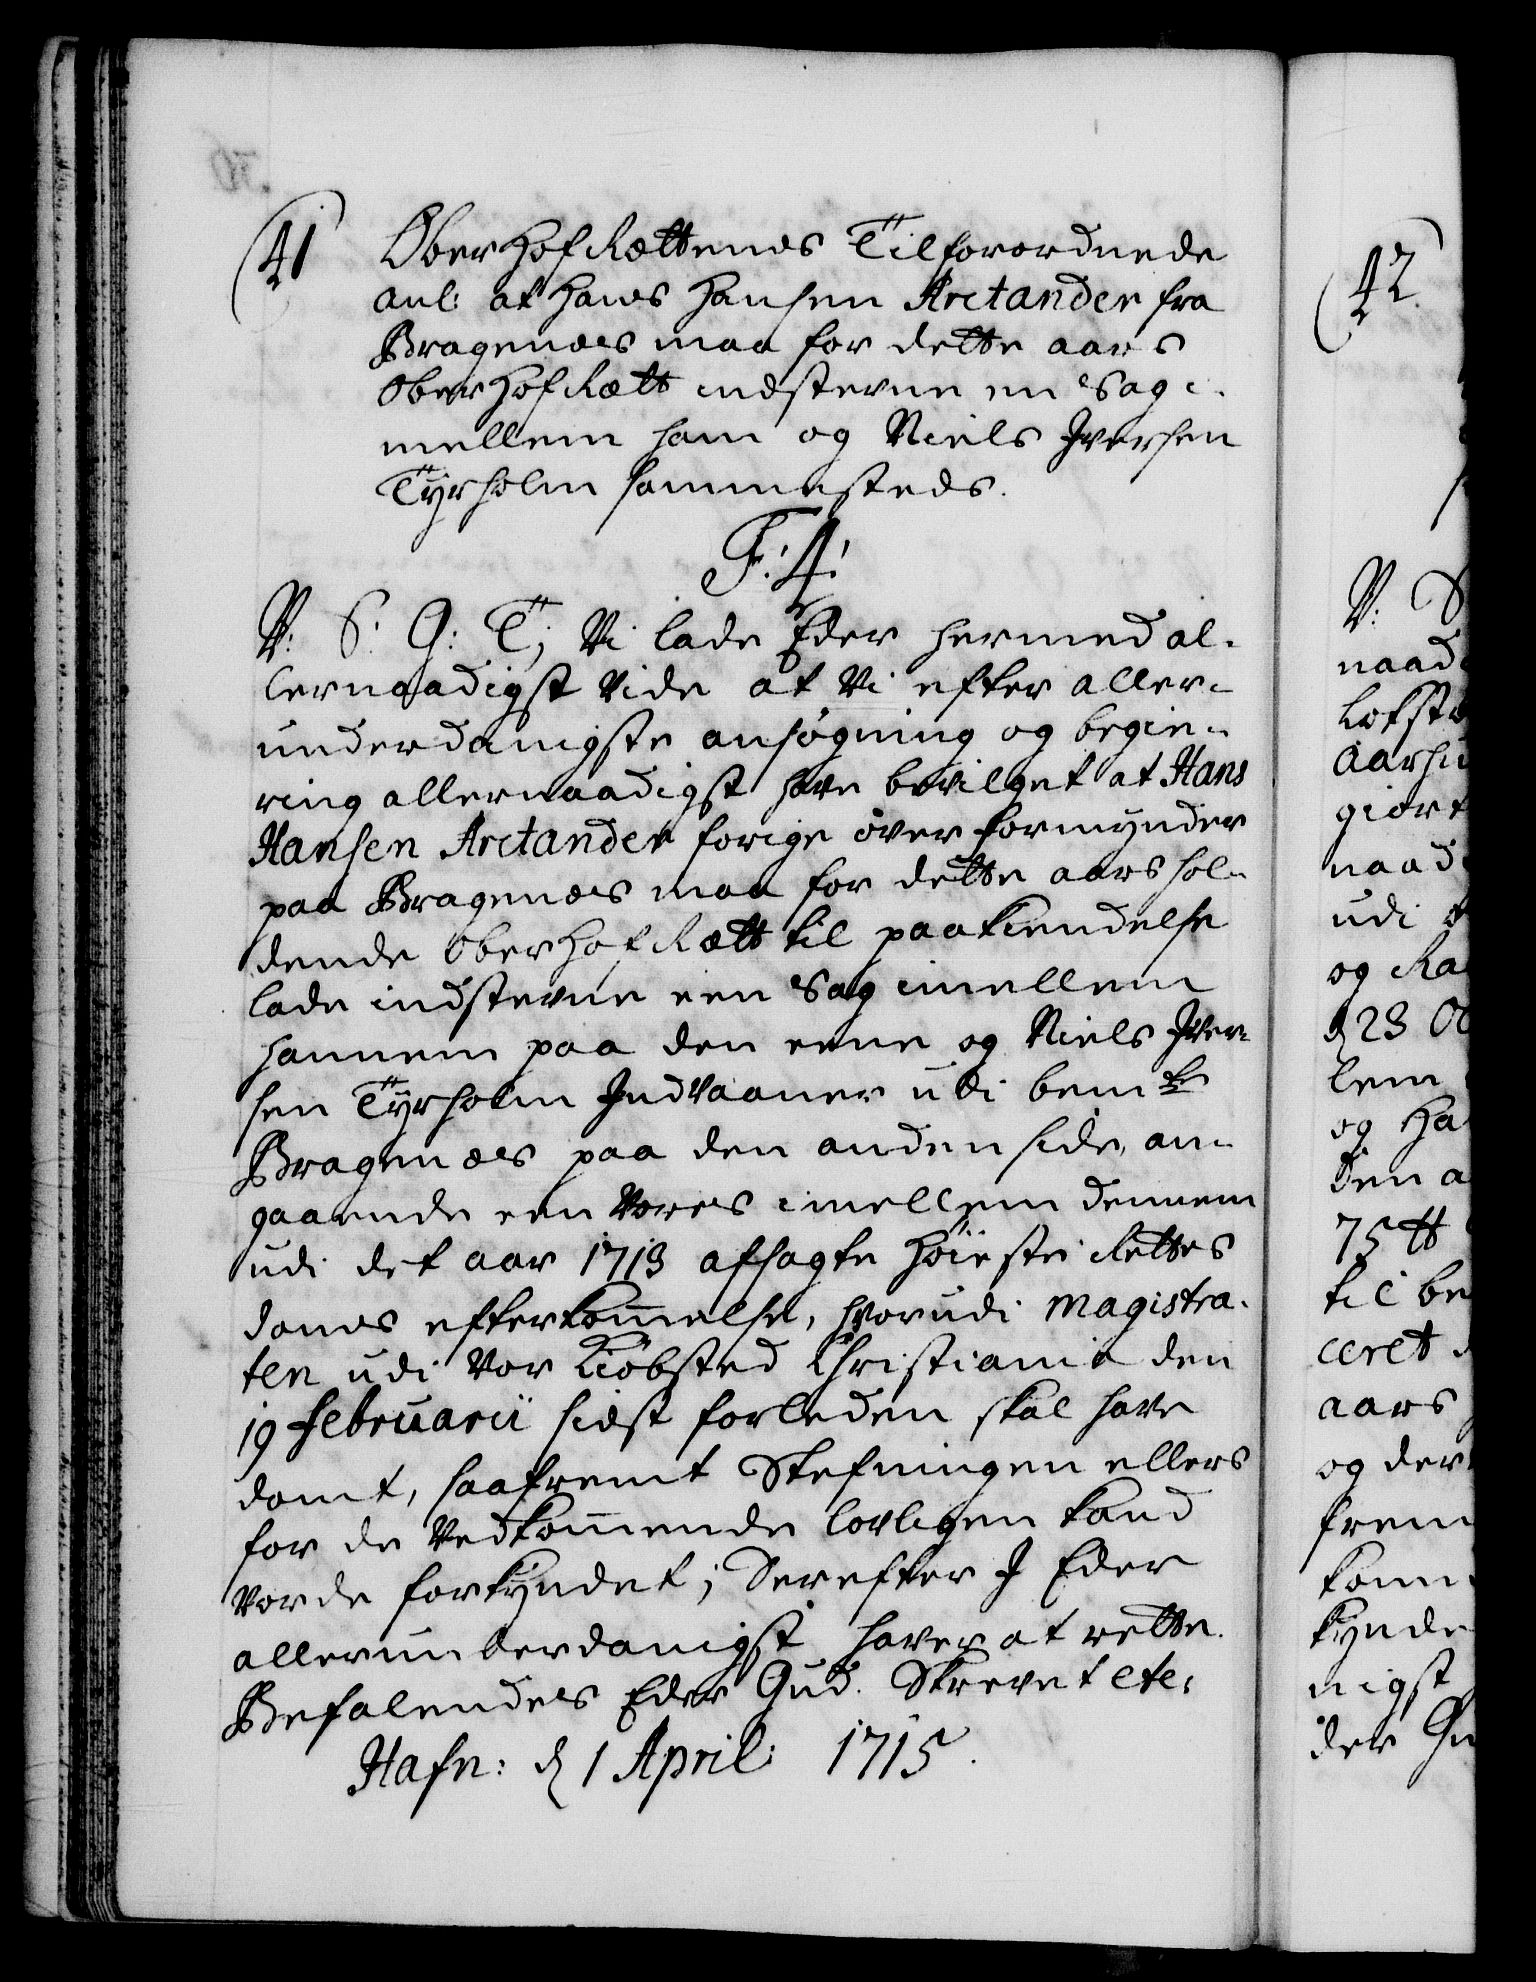 41
OberHofRettens Tilforordnede
anl: at Hans Hansen Arctander fra
Bragenæs maa for dette aars
OberHofRætt indstevne en Sag i-
mellem ham og Niels Iversen
Tyrholm sammesteds.
F:4:
V: S: G: T; Vi lade Eder hermed al-
lernaadigst vide at Vi efter aller-
underdanigste ansøgning og begie-
ring allernaadigst have bevilget at Hans
Hansen Arctander forige over formynder
paa Bragenæs maa for dette aars hol-
dende OberHofRætt til paakiendelse
lade indstevne een Sag imellem
hannem paa den eene og Niels Iver-
sen Tyrholm Indvaaner udi bemte
Bragenæs paa den anden side, an-
gaaende een Vores imellem dennem
udi det aar 1713 afsagte Høieste Rettes
doms efterkommelse, hvorudi Magistra-
ten udi Vor Kiøbsted Christiania den
19 Februarii sidst forleden skal have
dømt, saafremt Stefningen ellers
for de Vedkommende lovligen kand
vorde forkyndet; Derefter I Eder
allerunderdanigst haver at rette.
Befalendes Eder Gud. Skrevet etc:
Hafn: d 1 April: 1715.
42.
V: S
naad
aarhu
giort
naad
udi
og Ra
d 23 Oc
lem
og Ha
den a
75
til be
ceret
aars
og der
frem
komm
kynde
nigst
der Gu